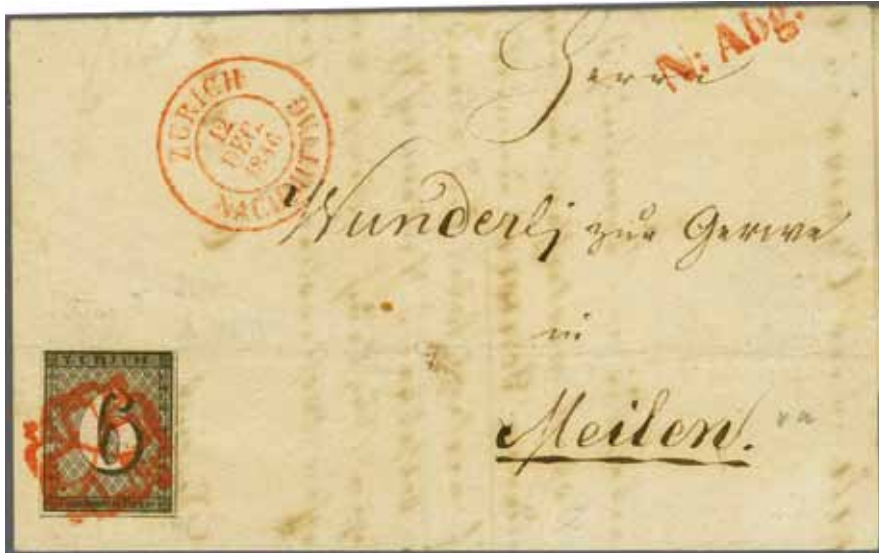 N: Abg.
ZÜRICH
12
DEC.
1846
NACHMITTAG
Herrn
Wunderlj zur Gerwe
in
Meilen.
ZÜRICH
6